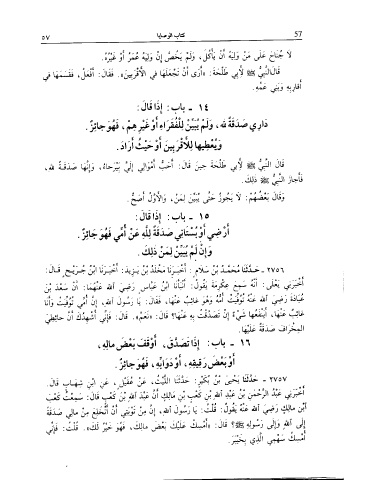 57 كتاب الوصايا ٥٧
لَا جُنَاحَ عَلَى مَنْ وَلِيَهُ أَنْ يَأْكُلَ، وَلَمْ يَخُصَّ إِنْ وَلِيَهُ عُمَرُ أَوْ غَيْرُهُ.
قَالَ النَّبِيُّ ﷺ لِأَبِي طَلْحَةَ: «أَرَى أَنْ تَجْعَلَهَا فِي الْأَقْرَبِينَ». فَقَالَ: أَفْعَلُ، فَقَسَمَهَا فِي
أَقَارِبِهِ وَبَنِي عَمِّهِ.
١٤ - باب: إِذَا قَالَ:
دَارِي صَدَقَةٌ لله، وَلَمْ يُبَيِّنْ لِلْفُقَرَاءِ أَوْ غَيْرِهِمْ، فَهُوَ جَائِزٌ.
وَيُعْطِيهَا لِلْأَقْرَبِينَ أَوْ حَيْثُ أَرَادَ.
قَالَ النَّبِيُّ ﷺ لِأَبِي طَلْحَةَ حِينَ قَالَ: أَحَبُّ أَمْوَالِي إِلَيَّ بَيْرُحَاءَ، وَإِنَّهَا صَدَقَةٌ لله،
فَأَجَازَ النَّبِيُّ ﷺ ذَلِكَ.
وَقَالَ بَعْضُهُمْ: لَا يَجُوزُ حَتَّى يُبَيِّنَ لِمَنْ، وَالْأَوَّلُ أَصَحُّ.
١٥ - باب: إِذَا قَالَ:
أَرْضِي أَوْ بُسْتَانِي صَدَقَةٌ لِلَّهِ عَنْ أُمِّي فَهُوَ جَائِزٌ.
وَإِنْ لَمْ يُبَيِّنْ لِمَنْ ذَلِكَ.
٢٧٥٦ - حَدَّثَنَا مُحَمَّدُ بْنُ سَلَامٍ: أَخْبَرَنَا مَخْلَدُ بْنُ يَزِيدَ: أَخْبَرَنَا ابْنُ جُرَيْجٍ قَالَ:
أَخْبَرَنِي يَعْلَى: أَنَّهُ سَمِعَ عِكْرِمَةَ يَقُولُ: أَنْبَأَنَا ابْنُ عَبَّاسٍ رَضِيَ اللهُ عَنْهُمَا: أَنَّ سَعْدَ بْنَ
عُبَادَةَ رَضِيَ اللهُ عَنْهُ تُوُفِّيَتْ أُمُّهُ وَهُوَ غَائِبٌ عَنْهَا، فَقَالَ: يَا رَسُولَ اللهِ، إِنَّ أُمِّي تُوُفِّيَتْ وَأَنَا
غَائِبٌ عَنْهَا، أَيَنْفَعُهَا شَيْءٌ إِنْ تَصَدَّقْتُ بِهِ عَنْهَا؟ قَالَ: «نَعَمْ». قَالَ: فَإِنِّي أُشْهِدُكَ أَنَّ حَائِطِيَ
المِخْرَافَ صَدَقَةٌ عَلَيْهَا.
١٦ - باب: إِذَا تَصَدَّقَ، أَوْ وَقَفَ بَعْضَ مالِهِ،
أَوْ بَعْضَ رَقِيقِهِ، أَوْ دَوَابِّهِ، فَهُوَ جَائِزٌ.
٢٧٥٧ - حَدَّثَنَا يَحْيَى بْنُ بُكَيْرٍ: حَدَّثَنَا اللَّيْثُ، عَنْ عُقَيْلٍ، عَنِ ابْنِ شِهَابٍ قَالَ:
أَخْبَرَنِي عَبْدُ الرَّحْمَنِ بْنُ عَبْدِ اللهِ بْنِ كَعْبِ بْنِ مَالِكٍ أَنَّ عَبْدَ اللهِ بْنَ كَعْبٍ قَالَ: سَمِعْتُ كَعْبَ
ابْنَ مَالِكٍ رَضِيَ اللهُ عَنْهُ يَقُولُ: قُلْتُ: يَا رَسُولَ اللهِ، إِنَّ مِنْ تَوْبَتِي أَنْ أَنْخَلِعَ مِنْ مالِي صَدَقَةً
إِلَى اللهِ وَإِلَى رَسُولِهِ ﷺ؟ قَالَ: «أَمْسِكْ عَلَيْكَ بَعْضَ مالِكَ، فَهُوَ خَيْرٌ لَكَ». قُلْتُ: فَإِنِّي
أُمْسِكُ سَهْمِي الَّذِي بِخَيْبَرَ.